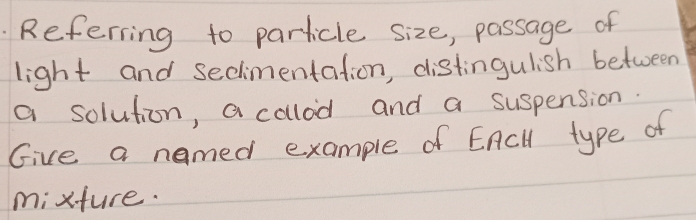 . Referring to particle size, passage of
light and sedimentation, distingulish between
a solution, a colloid and a suspension.
Give a named example of EACH type of
mixture.